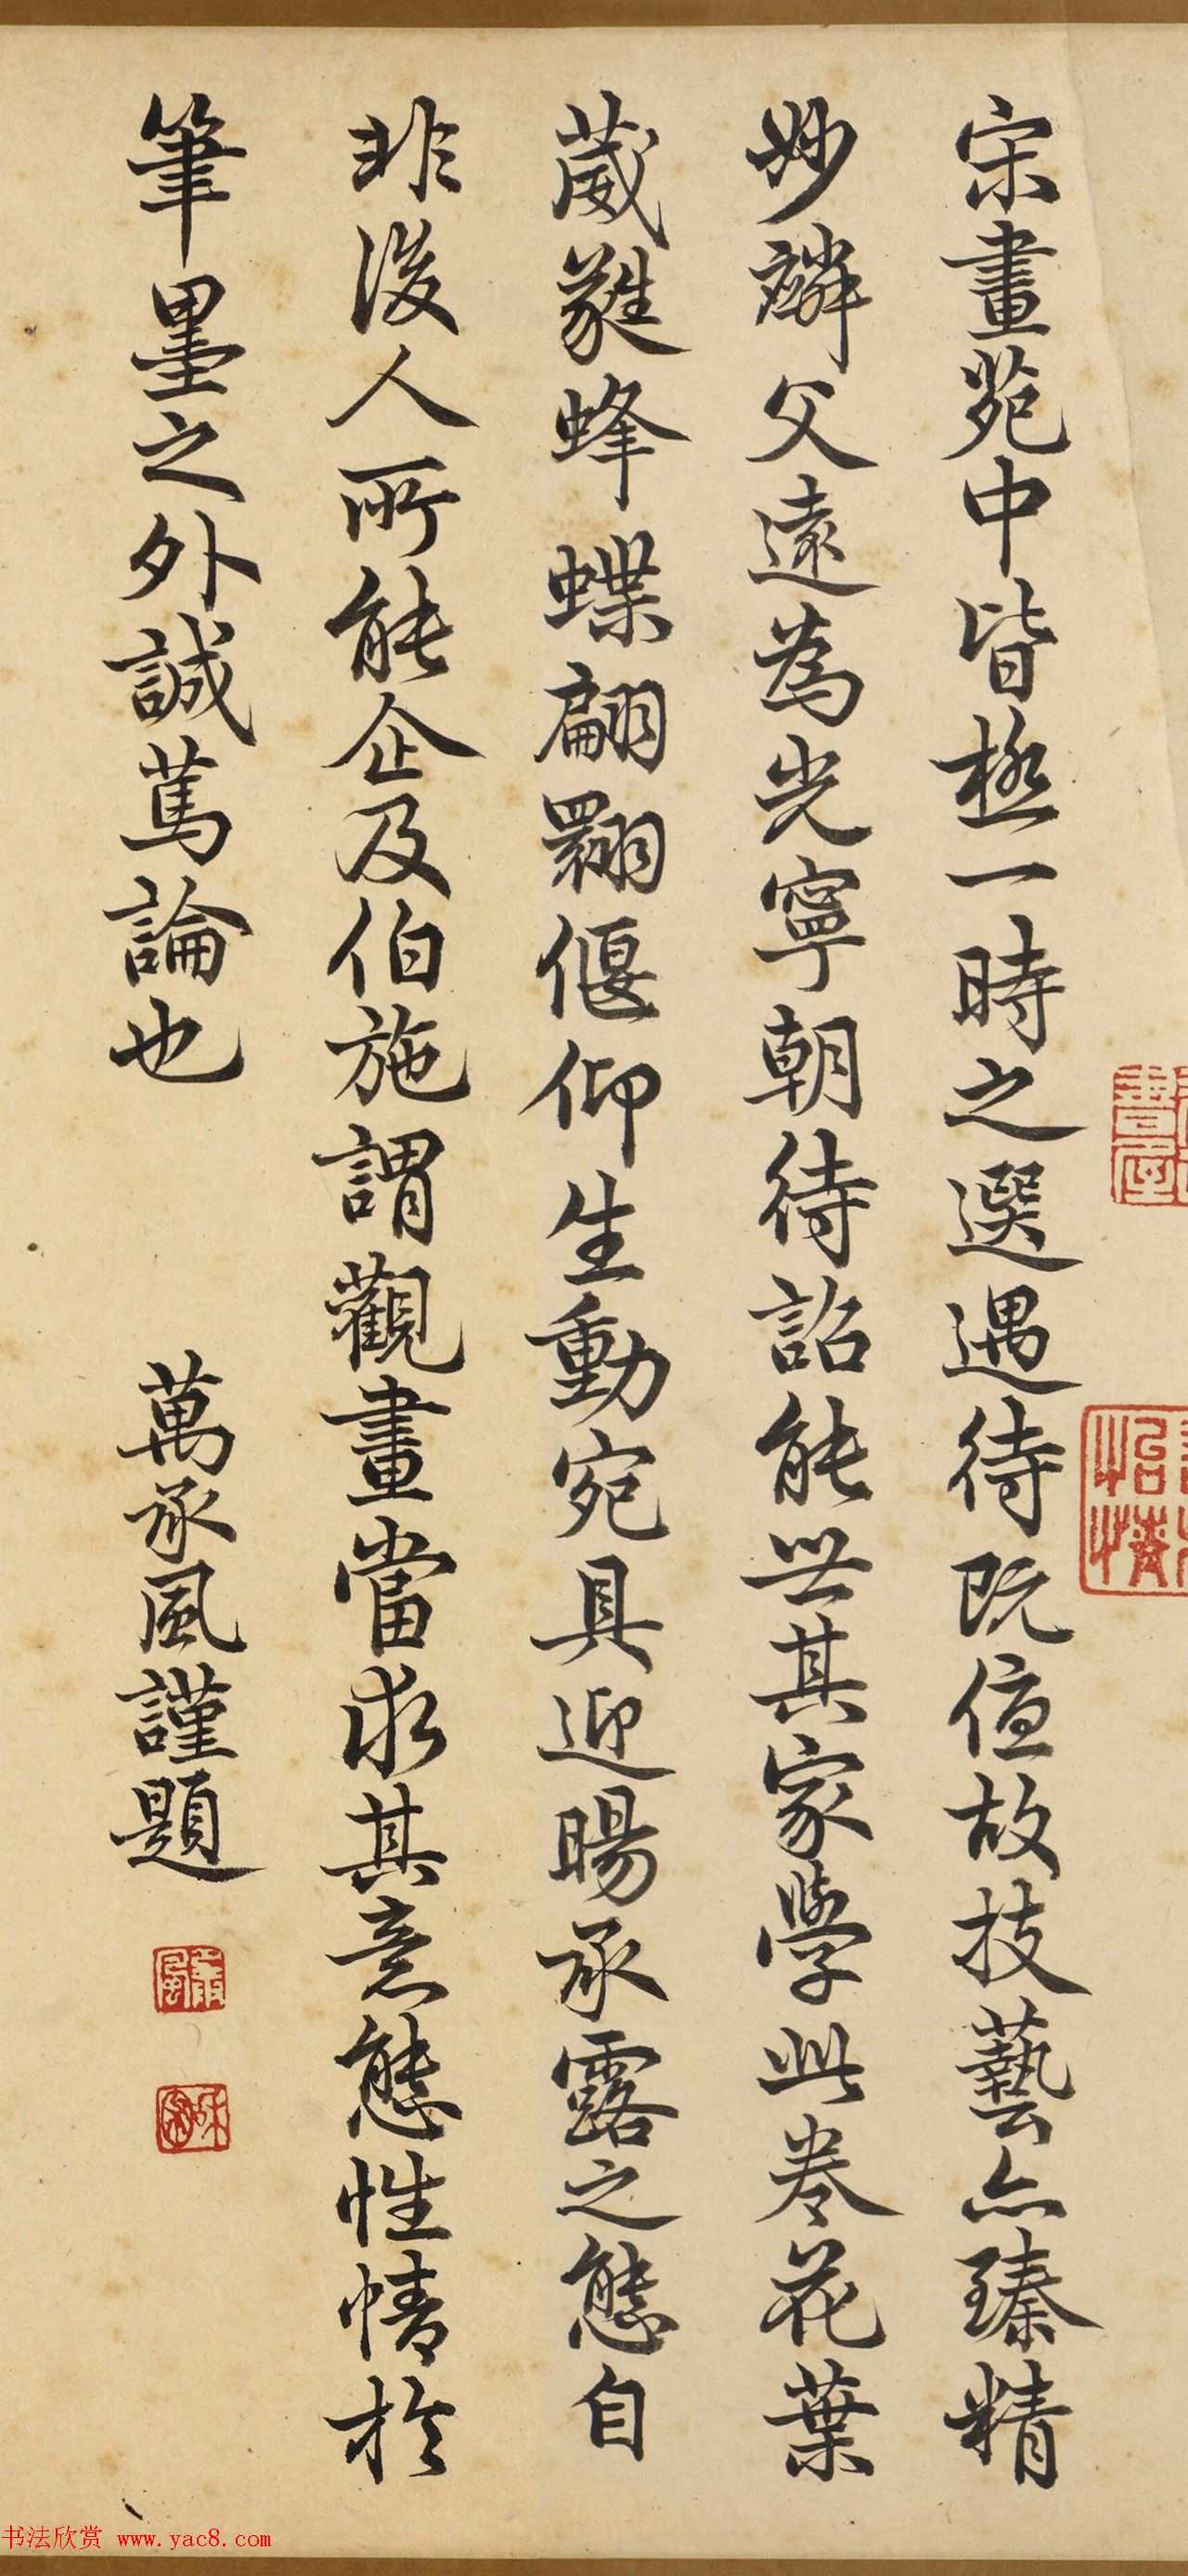 宋畫苑中皆極一時之選遇待既優故技藝亦臻精
妙麟父遠為光寧朝待詔能世其家學此卷花葉
葳蕤蜂蝶翩翾偃仰生動宛具迎暘承露之態自
非後人所能企及伯施謂觀畫當求其意態性情於
筆墨之外誠篤論也
萬承風謹題
承風
書屋
怡情
书法欣赏 www.yac8.com